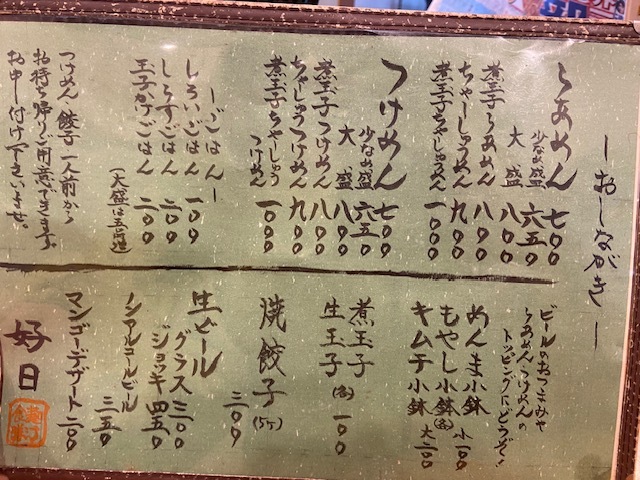 ーおしながきー
らあめん 七〇〇
少なめ盛 六五〇
大盛 八〇〇
煮玉子らあめん 八〇〇
ちゃーしゅうめん 九〇〇
煮玉子ちゃーしゅうめん 一〇〇〇
つけめん 七〇〇
少なめ盛 六五〇
大盛 八〇〇
煮玉子つけめん 八〇〇
ちゃーしゅうつけめん 九〇〇
煮玉子ちゃーしゅうつけめん 一〇〇〇
ーごはんー
しろいごはん 一〇〇
しらすごはん 二〇〇
玉子かけごはん 二〇〇
(大盛は五十円増)
つけめん・餃子 一人前から
お持ち帰りご用意できます
お申し付け下さいませ。
ビールのおつまみや
らあめん・つけめんの
トッピングにどうぞ!
めんま小鉢
もやし小鉢(各)小一〇〇
キムチ小鉢 大二〇〇
煮玉子
生玉子(各)一〇〇
焼餃子(5ヶ)
三〇〇
生ビール
グラス 三〇〇
ジョッキ 四五〇
ノンアルコールビール
三五〇
マンゴーデザート 二〇〇
好日